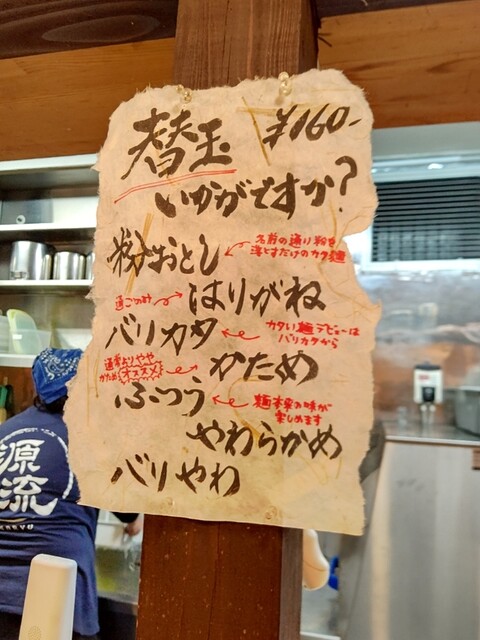 替玉 ¥160-
いかがですか?
粉おとし
名前の通り粉を
落とすだけのカタ麺
はりがね
通ごのみ
バリカタ
カタい麺デビューは
バリカタから
かため
通常よりやや
かため オススメ
ふつう
麺本来の味が
楽しめます
やわらかめ
バリやわ
源流